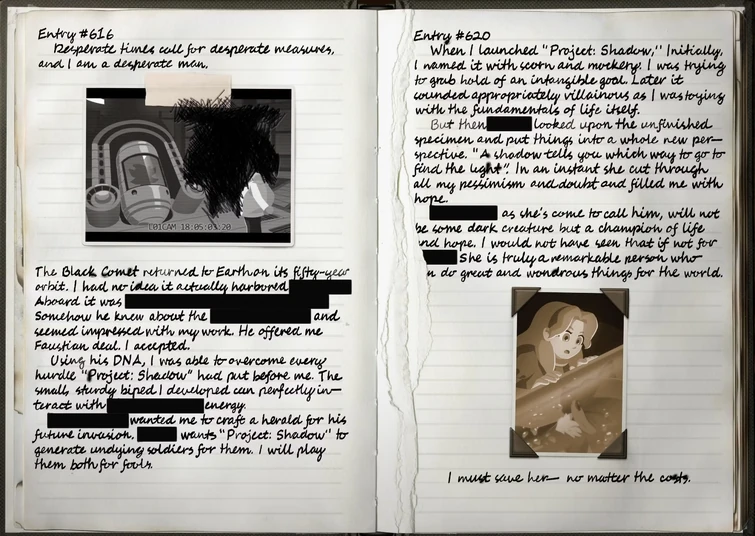 Entry #616
Desperate times call for desperate measures,
and I am a desperate man.
L01CAM 18:05:03:20
The Black Comet returned to Earth on its fifty-year
orbit. I had no idea it actually harbored
Aboard it was
Somehow he knew about the and
seemed impressed with my work. He offered me
Faustian deal. I accepted.
Using his DNA, I was able to overcome every
hurdle "Project: Shadow" had put before me. The
small, sturdy biped I developed can perfectly in-
teract with energy.
wanted me to craft a herald for his
future invasion. wants "Project: Shadow" to
generate undying soldiers for them. I will play
them both for fools.
Entry #620
When I launched "Project: Shadow," Initially,
I named it with scorn and mockery. I was trying
to grab hold of an intangible goal. Later it
sounded appropriately villainous as I was toying
with the fundamentals of life itself.
But then looked upon the unfinished
specimen and put things into a whole new per-
spective. "A shadow tells you which way to go to
find the light". In an instant she cut through
all my pessimism and doubt and filled me with
hope.
as she's come to call him, will not
be some dark creature but a champion of life
and hope. I would not have seen that if not for
She is truly a remarkable person who
do great and wondrous things for the world.
I must save her— no matter the costs.